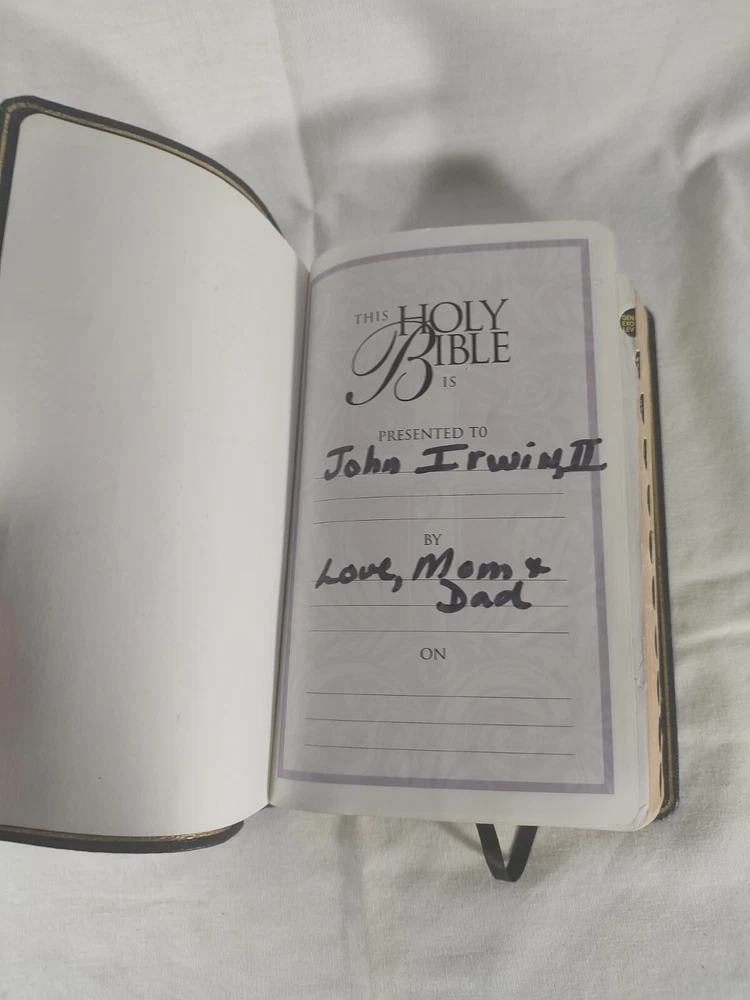 THIS HOLY
BIBLE
IS
PRESENTED TO
John Irwin, II
BY
Love, Mom &
Dad
ON
GEN
EXO
LEV